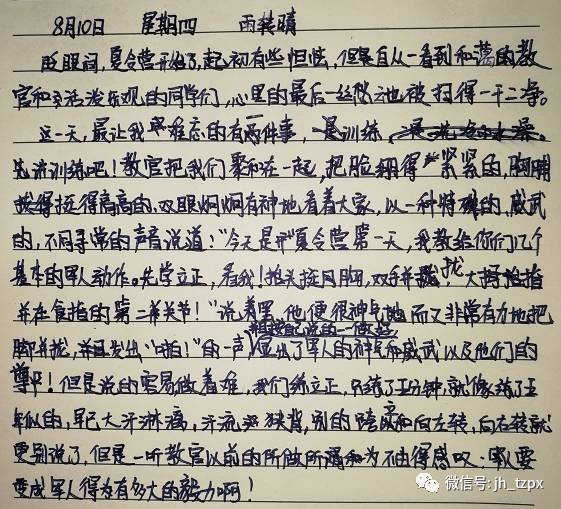 8月10日 星期四 雨转晴
眨眼间,夏令营开始了,起初有些怛怯,但是自从一看到和蔼的教
官和活泼乐观的同学们,心里的最后一丝愁云也被扫得一干二净。
这一天,最让我难忘的有两件事,一是训练,
先讲训练吧!教官把我们聚和在一起,把脸绷得紧紧的,胸脯
挺得高高的,双眼炯炯有神地看着大家,以一种特殊的、威武
的,不同寻常的声音说道:“今天是夏令营第一天,我教给你们几个
基本的军人动作。先学立正,看我!抬头挺胸,双手并拢,大拇指
并在食指的第二关节!”说着罢,他便很神气地而又非常有力地把
脚并拢,并且发出“啪!”的一声,显出了军人的神气和威武以及他们的
尊严!但是说的容易做着难,我们练立正,只练了五分钟,就像练了五
年似的,早已大汗淋漓,汗流浃背,别的跨立和向左转,向右转就
更别说了,但是一听教官以前的所做所为不由得感叹:要
变成军人得有多大的毅力啊!
微信号:jh_tzpx